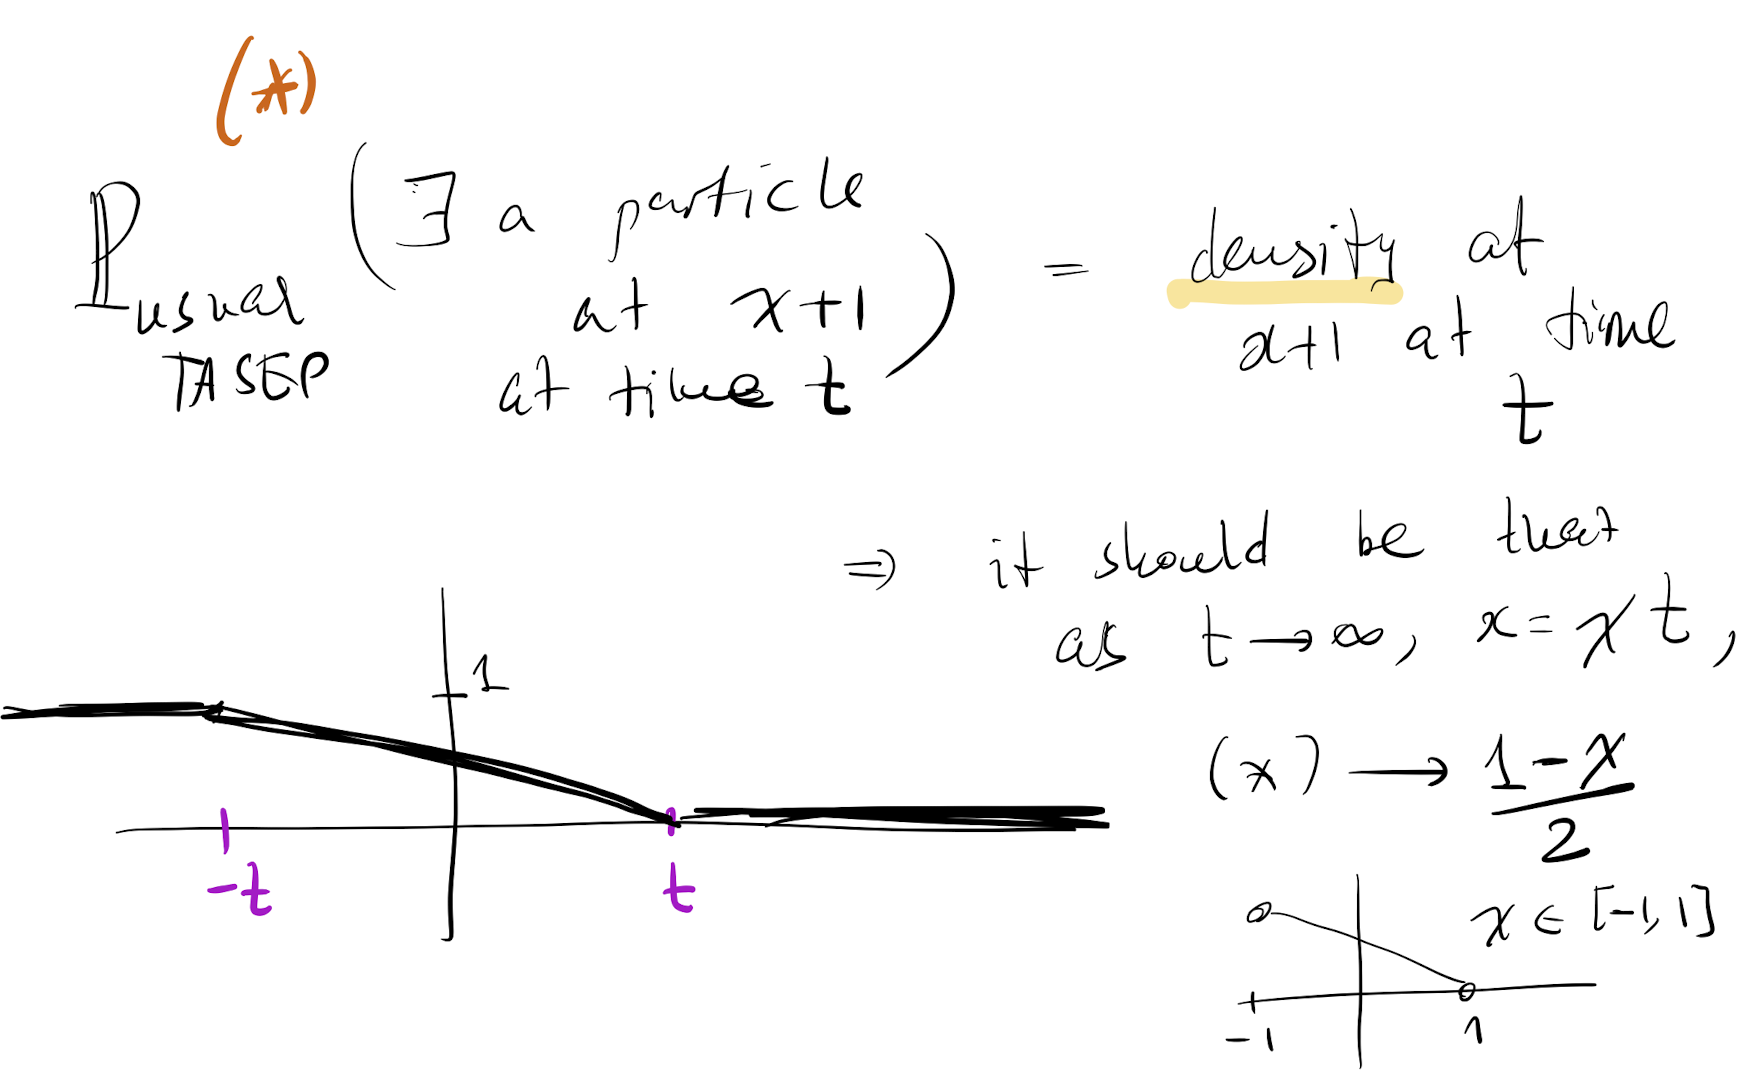 (*)
ℙ usual TASEP ( ∃ a particle
at x+1
at time t ) = density at
x+1 at time
t
⇒ it should be that
as t → ∞, x = χ t,
(*) → (1-χ)/2
χ ∈ [-1,1]
1
-t t
-1 1